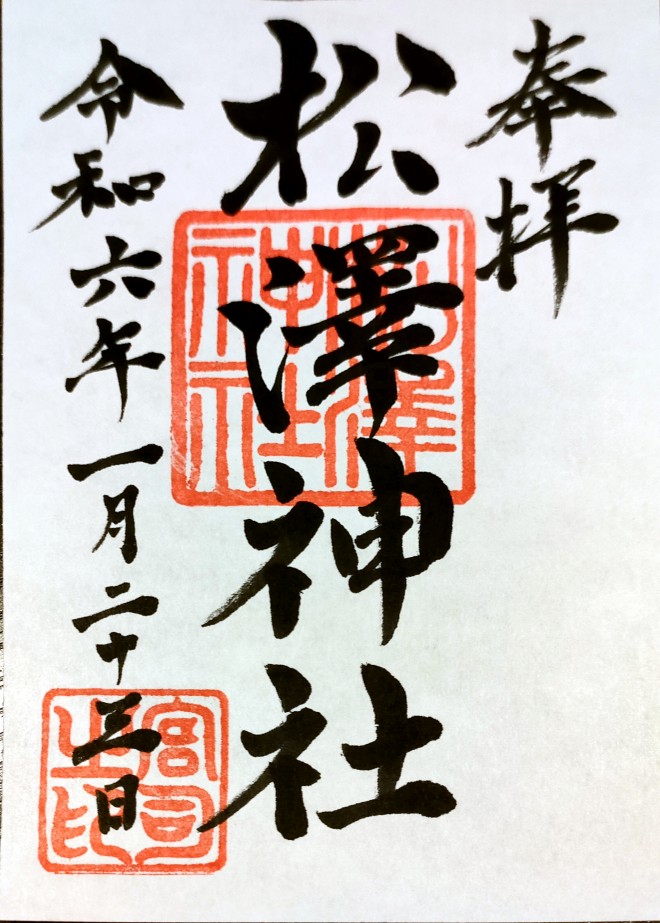 奉拝
松澤神社
令和六年一月二十三日
松澤神社
宮司之印